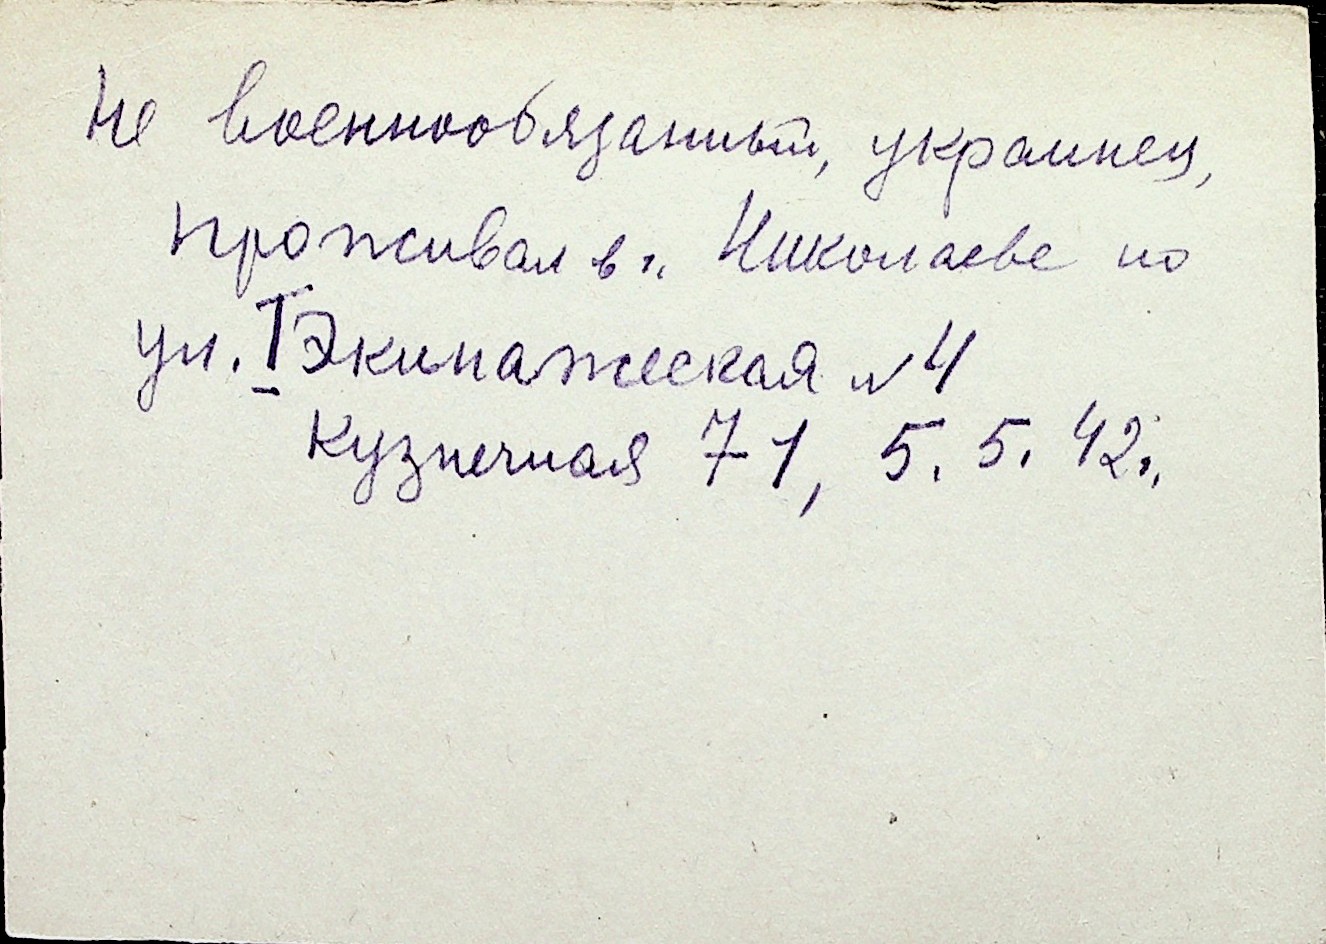 Не военнообязанный, украинец,
проживал в г. Николаеве по
ул. I Экипажеская № 4
Кузнечная 71, 5.5.42г.